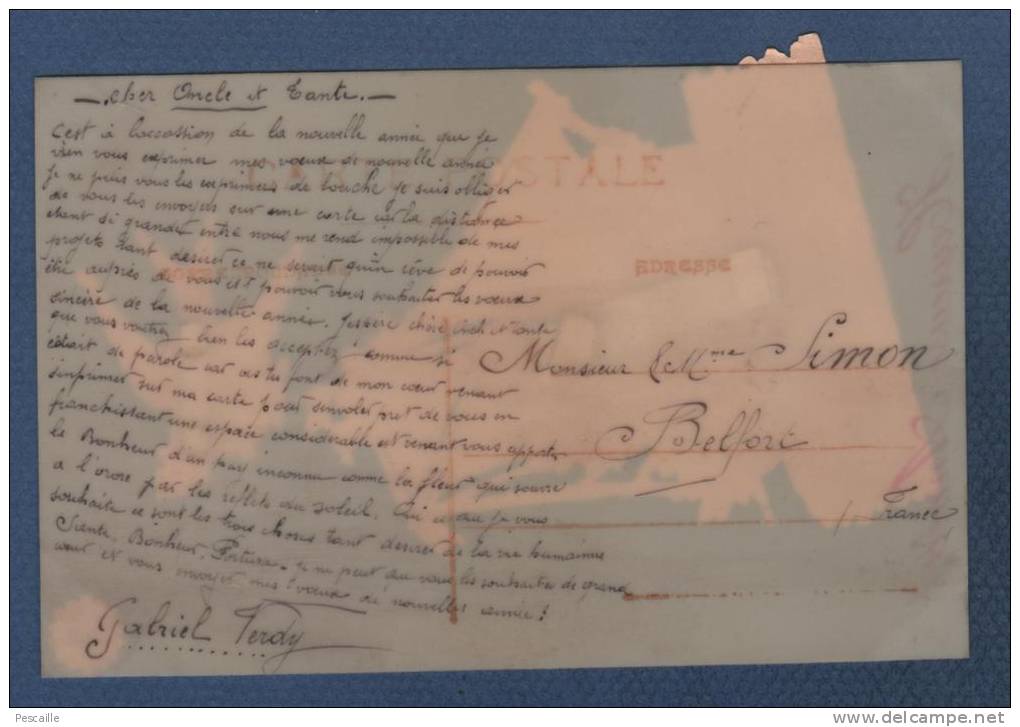 cher Oncle et Tante.
C'est à l'occassion de la nouvelle année que je
vien vous exprimer mes voeux de nouvelle année
Je ne puis vous les exprimer de bouche je suis obliger
de vous les envoyer sur une carte car la distance
etant si grande entre nous me rend impossible de mes
projets tant desirer ce ne serait qu'un rêve de pouvoir
être auprès de vous et pouvoir vous souhaiter les voeux
sincère de la nouvelle année. J'espère chère oncle et Tante
que vous voudrez bien les acceptez comme si
c'était de parole car du font de mon coeur venant
s'imprimer sur ma carte pour s'envoler pret de vous en
franchissant une espace considerable et venant vous apporter
le Bonheur d'un pays inconnu comme la fleur qui souvre
a l'orore par les reflets du soleil. Qui ce que je vous
souhaite ce sont les trois choses tant desirer de la vie humaine
Sante, Bonheur, Fortune. je ne peut que vous les souhaiter de grand
coeur et vous envoyer mes voeux de nouvelles année!
Gabriel Verdy
CARTE POSTALE
ADRESSE
Monsieur & Mme Simon
Belfort
France
Pescaille
www.delcampe.net